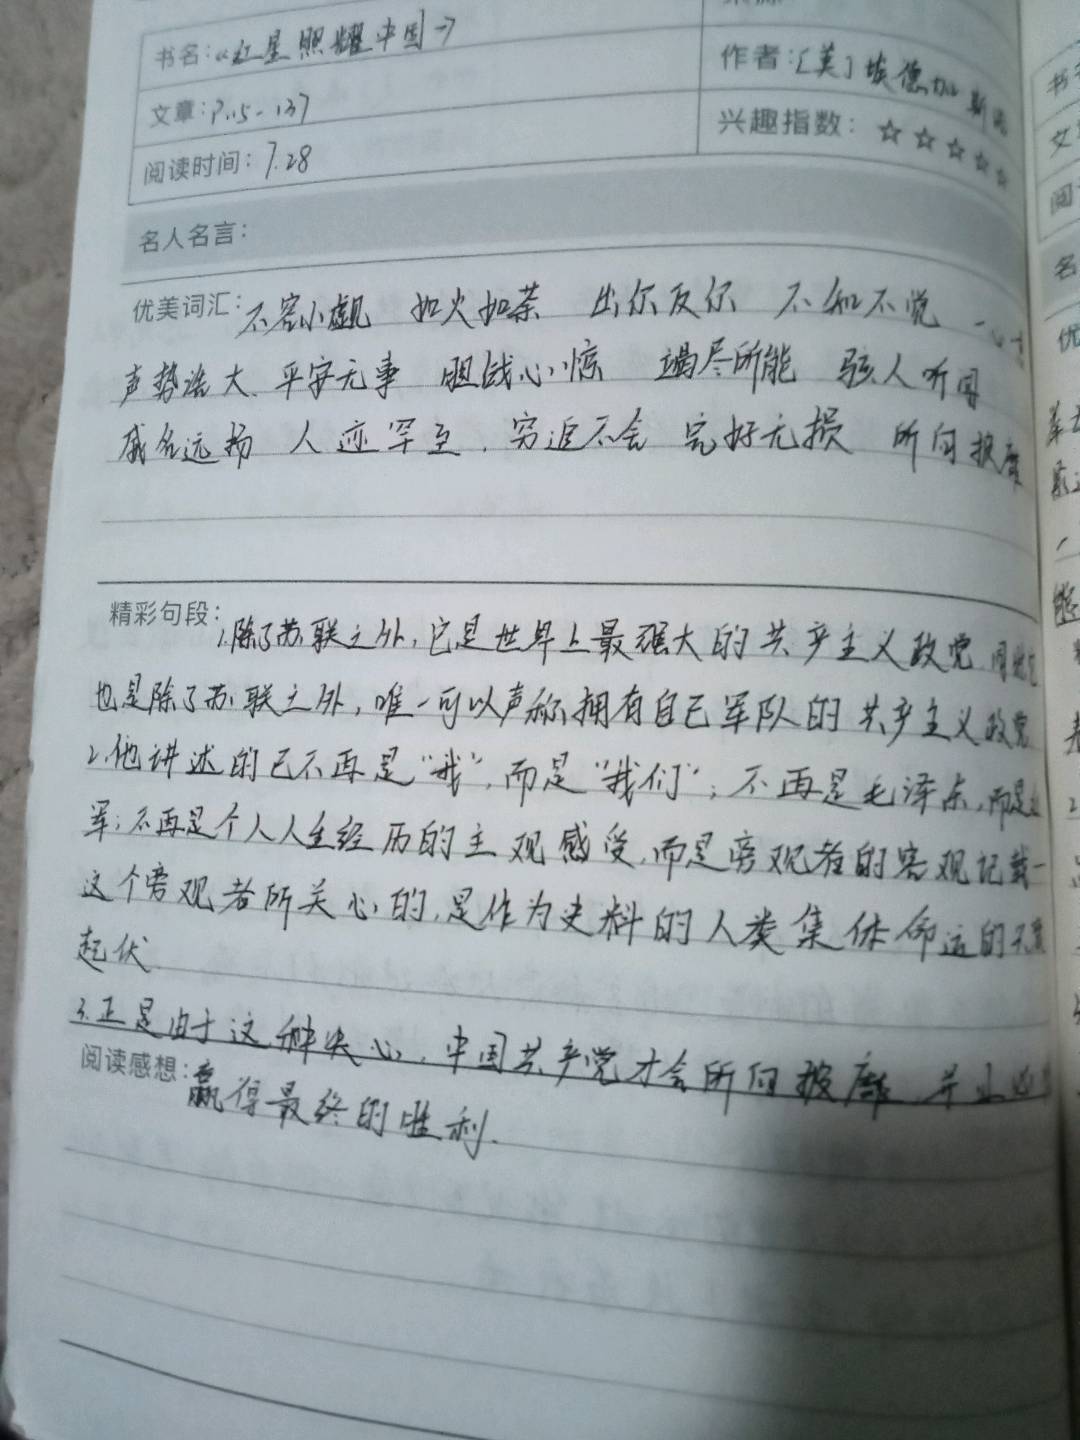 书名:《红星照耀中国》
作者:[美]埃德加斯诺
文章:P.115-137
兴趣指数: ☆☆☆☆☆
阅读时间: 7.28
名人名言:
优美词汇: 不容小觑 如火如荼 出尔反尔 不知不觉
声势浩大 平安无事 胆战心惊 竭尽所能 骇人听闻
威名远扬 人迹罕至 穷追不舍 完好无损 所向披靡
精彩句段: 1.除了苏联之外,它是世界上最强大的共产主义政党
也是除了苏联之外,唯一可以声称拥有自己军队的共产主义政党
2.他讲述的已不再是“我”,而是“我们”;不再是毛泽东,而是
军;不再是个人人生经历的主观感受,而是旁观者的客观记载—
这个旁观者所关心的,是作为史料的人类集体命运的
起伏.
3.正是由于这种决心,中国共产党才会所向披靡,并
阅读感想: 赢得最终的胜利.